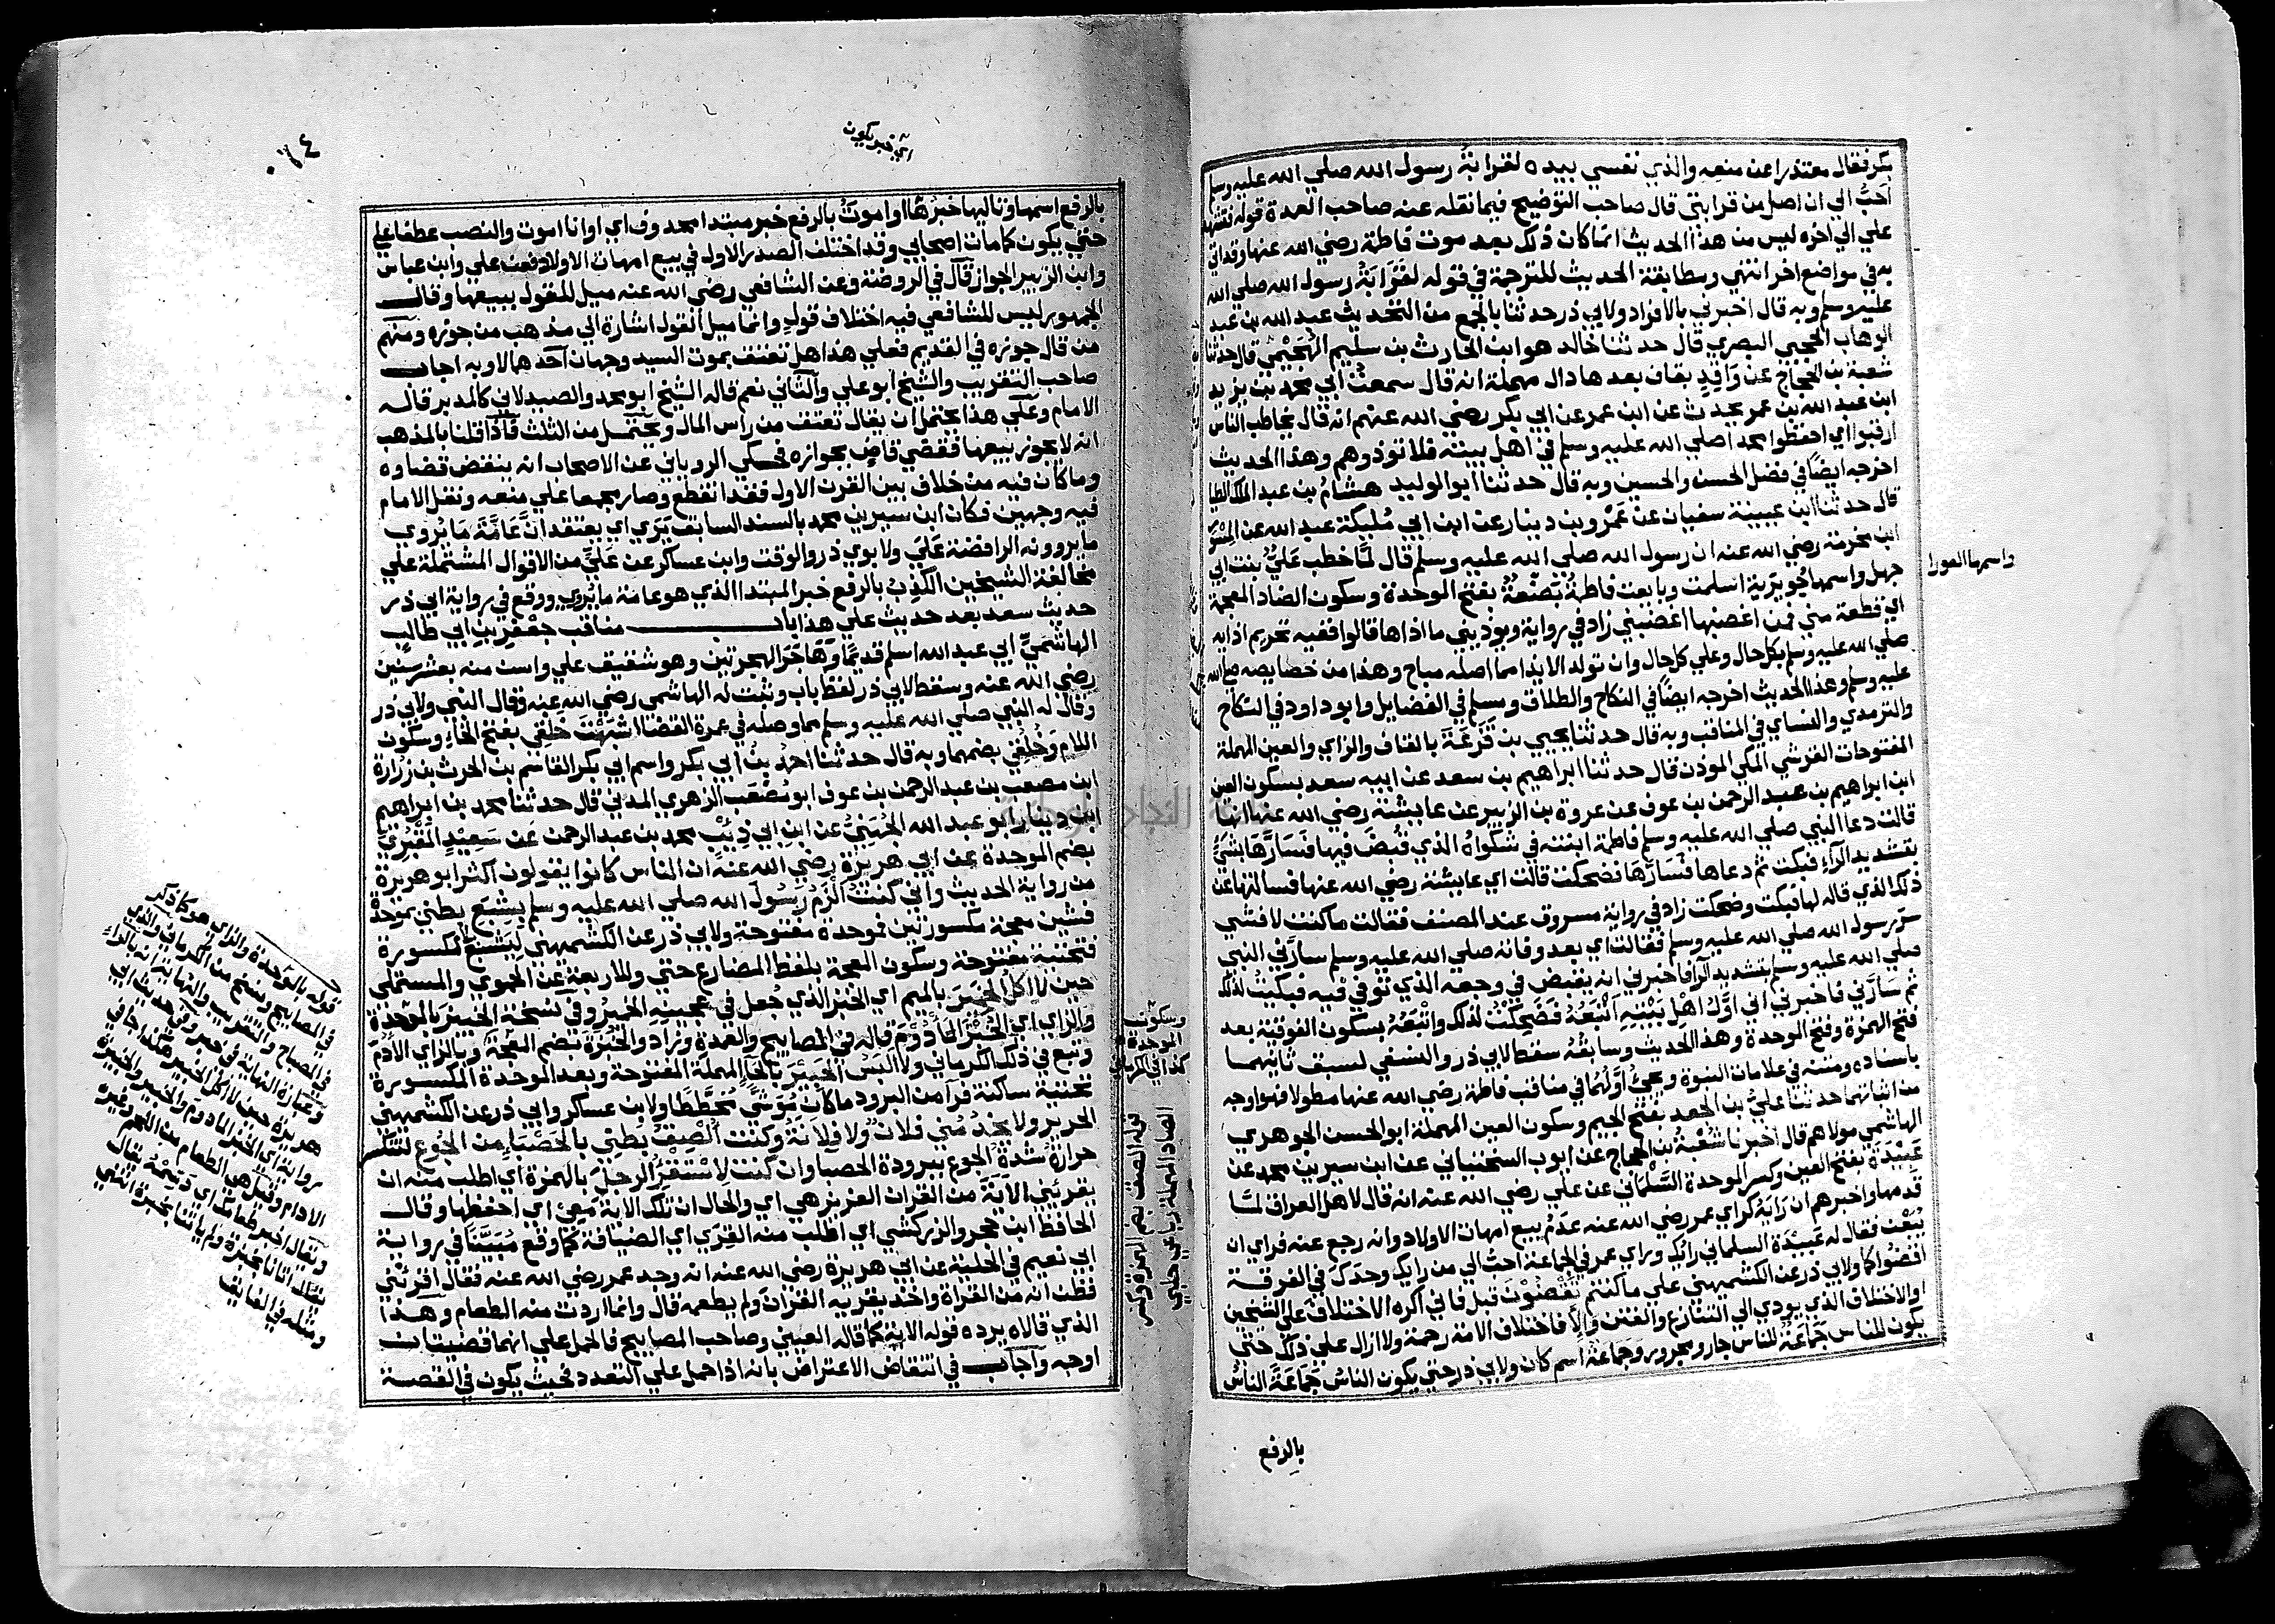 بكر فقال معتذرا عن منعه والذي نفسي بيده لقرابة رسول الله صلي الله عليه وسلم
احب الي ان اصل من قرابتي قال صاحب التوضيح فيما نقله عنه صاحب العمدة قوله فتشهد
علي الي اخره ليس من هذا الحديث انما كان ذلك بعد موت فاطمة رضي الله عنها وقد اتي
به في مواضع اخر انتهي ومطابقة الحديث للترجمة في قوله لقرابة رسول الله صلي الله
عليه وسلم وبه قال اخبرني بالافراد ولابي ذر حدثنا بالجمع من التحديث عبد الله بن عبد
الوهاب الحجبي البصري قال حدثنا خالد هو ابن الحارث بن سليم الهجيمي قال حدثنا
شعبة بن الحجاج عن واقد بقاف بعدها دال مهملة انه قال سمعت ابي محمد بن يزيد
ابن عبد الله بن عمر يحدث عن ابن عمر عن ابي بكر رضي الله عنهم انه قال يخاطب الناس
ارقبوا اي احفظوا محمدا صلي الله عليه وسلم في اهل بيته فلا توذوهم وهذا الحديث
اخرجه ايضا في فضل الحسن والحسين وبه قال حدثنا ابو الوليد هشام بن عبد الملك الطيا
قال حدثنا ابن عيينة سفيان عن عمرو بن دينار عن ابن ابي مليكة عبد الله عن المسور
ابن مخرمة رضي الله عنه ان رسول الله صلي الله عليه وسلم قال لما خطب علي بنت ابي
جهل واسمها جويرية اسلمت وبايعت فاطمة بضعة بفتح الموحدة وسكون الضاد المعجمة
اي قطعة مني فمن اغضبها اغضبني زاد في رواية ويوذيني ما اذاها قالوا ففيه تحريم اذايه
صلي الله عليه وسلم بكل حال وعلي كل حال وان تولد الايذا مما اصله مباح وهذا من خصايصه صلي الله
عليه وسلم وهذا الحديث اخرجه ايضا في النكاح والطلاق ومسلم في الفضايل وابو داود في النكاح
والترمذي والنساي في المناقب وبه قال حدثنا يحيي بن قزعة بالقاف والزاي والعين المهملة
المفتوحات القرشي المكي الموذن قال حدثنا ابراهيم بن سعد عن ابيه سعد بسكون العين
ابن ابراهيم بن عبد الرحمن بن عوف عن عروة بن الزبير عن عايشة رضي الله عنها انها
قالت دعا النبي صلي الله عليه وسلم فاطمة ابنته في شكواه الذي قبض فيها فسارها بشي
بتشديد الراء فبكت ثم دعاها فسارها فضحكت قالت اي عايشة رضي الله عنها فسالتها عن
ذلك الذي قاله لها فبكت وضحكت زاد في رواية مسروق عند المصنف فقالت ما كنت لافشي
سر رسول الله صلي الله عليه وسلم فقالت اي بعد وفاته صلي الله عليه وسلم سارني النبي
صلي الله عليه وسلم بتشديد الرا فاخبرني انه يقبض في وجعه الذي توفي فيه فبكيت لذلك
ثم سارني فاخبرني اني اول اهل بيته اتبعه فضحكت لذلك واتبعه بسكون الفوقية بعد
فتح الهمزة وفتح الموحدة وهذا الحديث وسابقه سقط لابي ذر والنسفي لسبق ثانيهما
باسناده ومتنه في علامات النبوة ويجي اولهما في مناقب فاطمة رضي الله عنها مطولا فهو اوجه
من اثباتهما حدثنا علي بن الجعد بفتح الجيم وسكون العين المهملة ابو الحسن الجوهري
الهاشمي مولاهم قال اخبرنا شعبة بن الحجاج عن ايوب السختياني عن ابن سيرين محمد عن
عبيدة بفتح العين وكسر الموحدة السلماني عن علي رضي الله عنه انه قال لاهل العراق لما
قدمها واخبرهم ان رايه كراي عمر رضي الله عنه عدم بيع امهات الاولاد وانه رجع عنه فراي ان
يبعن فقال له عبيدة السلماني رايك وراي عمر في الجماعة احب الي من رايك وحدك في الفرقة
اقضوا كما ولابي ذر عن الكشميهني علي ما كنتم تقضون قبل فاني اكره الاختلاف علي الشيخين
او الاختلاف الذي يودي الي التنازع والفتن والا فاختلاف الامة رحمة ولا ازال علي ذلك حتي
يكون للناس جماعة للناس جار ومجرور وجماعة اسم كان ولابي ذر حتي يكون الناس جماعة الناس
بالرفع
واسمها العورا
٠١٤
اي خبر يكون
بالرفع اسمها وتاليها خبرها او اموت بالرفع خبر مبتدا محذوف اي او انا اموت والنصب عطفا علي
حتي يكون كما مات اصحابي وقد اختلف الصدر الاول في بيع امهات الاولاد فعن علي وابن عباس
وابن الزبير الجواز قال في الروضة وعن الشافعي رضي الله عنه ميل للقول ببيعها وقال
الجمهور ليس للشافعي فيه اختلاف قول وانما ميل القول اشارة الي مذهب من جوزه ومنهم
من قال جوزه في القديم فعلي هذا هل تعتق بموت السيد وجهان احدهما لا وبه اجاب
صاحب التقريب والشيخ ابو علي والثاني نعم قاله الشيخ ابو محمد والصيدلاني كالمدبر قاله
الامام وعلي هذا يحتمل ان يقال تعتق من راس المال ويحتمل من الثلث فاذا قلنا بالمذهب
انه لا يجوز بيعها فقضي قاض بجوازه فحكي الروياني عن الاصحاب انه ينقض قضاوه
وما كان فيه من خلاف بين القرن الاول فقد انقطع وصار مجمعا علي منعه ونقل الامام
فيه وجهين فكان ابن سيرين محمد بالسند السابق يري اي يعتقد ان عامة ما يروي
ما يرويه الرافضة علي ولابوي ذر والوقت وابن عساكر عن علي من الاقوال المشتملة علي
مخالفة الشيخين الكذب بالرفع خبر المبتدا الذي هو عامة ما يروي ووقع في رواية ابي ذر
حديث سعد بعد حديث علي هذا باب مناقب جعفر بن ابي طالب
الهاشمي ابي عبد الله اسلم قديما وهاجر الهجرتين وهو شقيق علي واسن منه بعشر سنين
رضي الله عنه وسقط لابي ذر لفظ باب وثبت له الهاشمي رضي الله عنه وقال النبي ولابي ذر
وقال له النبي صلي الله عليه وسلم مما وصله في عمرة القضا اشبهت خلقي بفتح الخاء وسكون
اللام وخلقي بضمهما وبه قال حدثنا احمد بن ابي بكر واسم ابي بكر القاسم بن الحرث بن زرارة
ابن مصعب بن عبد الرحمن بن عوف ابو مصعب الزهري المدني قال حدثنا محمد بن ابراهيم
ابن دينار ابو عبد الله الجهني عن ابن ابي ذيب محمد بن عبد الرحمن عن سعيد المقبري
بضم الموحدة عن ابي هريرة رضي الله عنه ان الناس كانوا يقولون اكثر ابو هريرة
من رواية الحديث واني كنت الزم رسول الله صلي الله عليه وسلم بشبع بطني بموحدة
فشين معجمة مكسورتين فموحدة مفتوحة ولابي ذر عن الكشميهني ليشبع بلام مكسورة
فتحتية مفتوحة وسكون المعجمة بلفظ المضارع حتي وللاربعة عن الحموي والمستملي
حين لا اكل الخمير بالميم اي الخبز الذي جعل في عجينه الخمير وفي نسخة الخبيز بالموحدة
والزاي اي الخبز المادوم قاله في المصابيح والعمدة وزاد والخبزة بضم المعجمة وبالزاي الادم
وتبع في ذلك الكرماني ولا البس الحبير بالحا المهملة المفتوحة وبعد الموحدة المكسورة
تحتية ساكنة فرا من البرود ما كان موشي مخططا ولابن عساكر وابي ذر عن الكشميهني
الحرير ولا يخدمني فلان ولا فلانة وكنت الصق بطني بالحصباء من الجوع لتنكسر
حرارة شدة الجوع ببرودة الحصبا وان كنت لاستقري الرجل بالهمزة اي اطلب منه ان
يقريني الاية من القران العزيز هي اي والحال ان تلك الاية معي اي احفظها وقال
الحافظ ابن حجر والزركشي اي اطلب منه القري اي الضيافة كما وقع مبينا في رواية
ابي نعيم في الحلية عن ابي هريرة رضي الله عنه انه وجد عمر رضي الله عنه فقال اقرئني
فظن انه من القراة واخذ يقريه القران ولم يطعمه قال وانما اردت منه الطعام وهذا
الذي قالاه يرده قوله الاية كما قاله العيني وصاحب المصابيح فالحمل علي انهما قضيتان
اوجه واجاب في انتقاض الاعتراض بانه اذا حمل علي التعدد فحيث يكون في القصة
وسكون
الموحدة
كذا في الكرماني
قوله الصق بضم الهمزة وكسر
الصاد المهملة رباعي حلبي
قوله بالموحدة والزاي هو كما ذكر
في المصابيح ونسخ من الكرماني والذي
في المصباح والتقريب والنهاية انه بالراء
وعبارة النهاية في خبر وفي حديث ابي
هريرة حين لا اكل الخبير هكذا جا في
رواية اي الخبز المادوم والخبير والخبزة
الادام وقيل هي الطعام من اللحم وغيره
ويقال اخبر طعامك اي دسمه يقال
اتانا بخبزة ولم ياتنا بخبزة انتهي
ومثله في الفايق